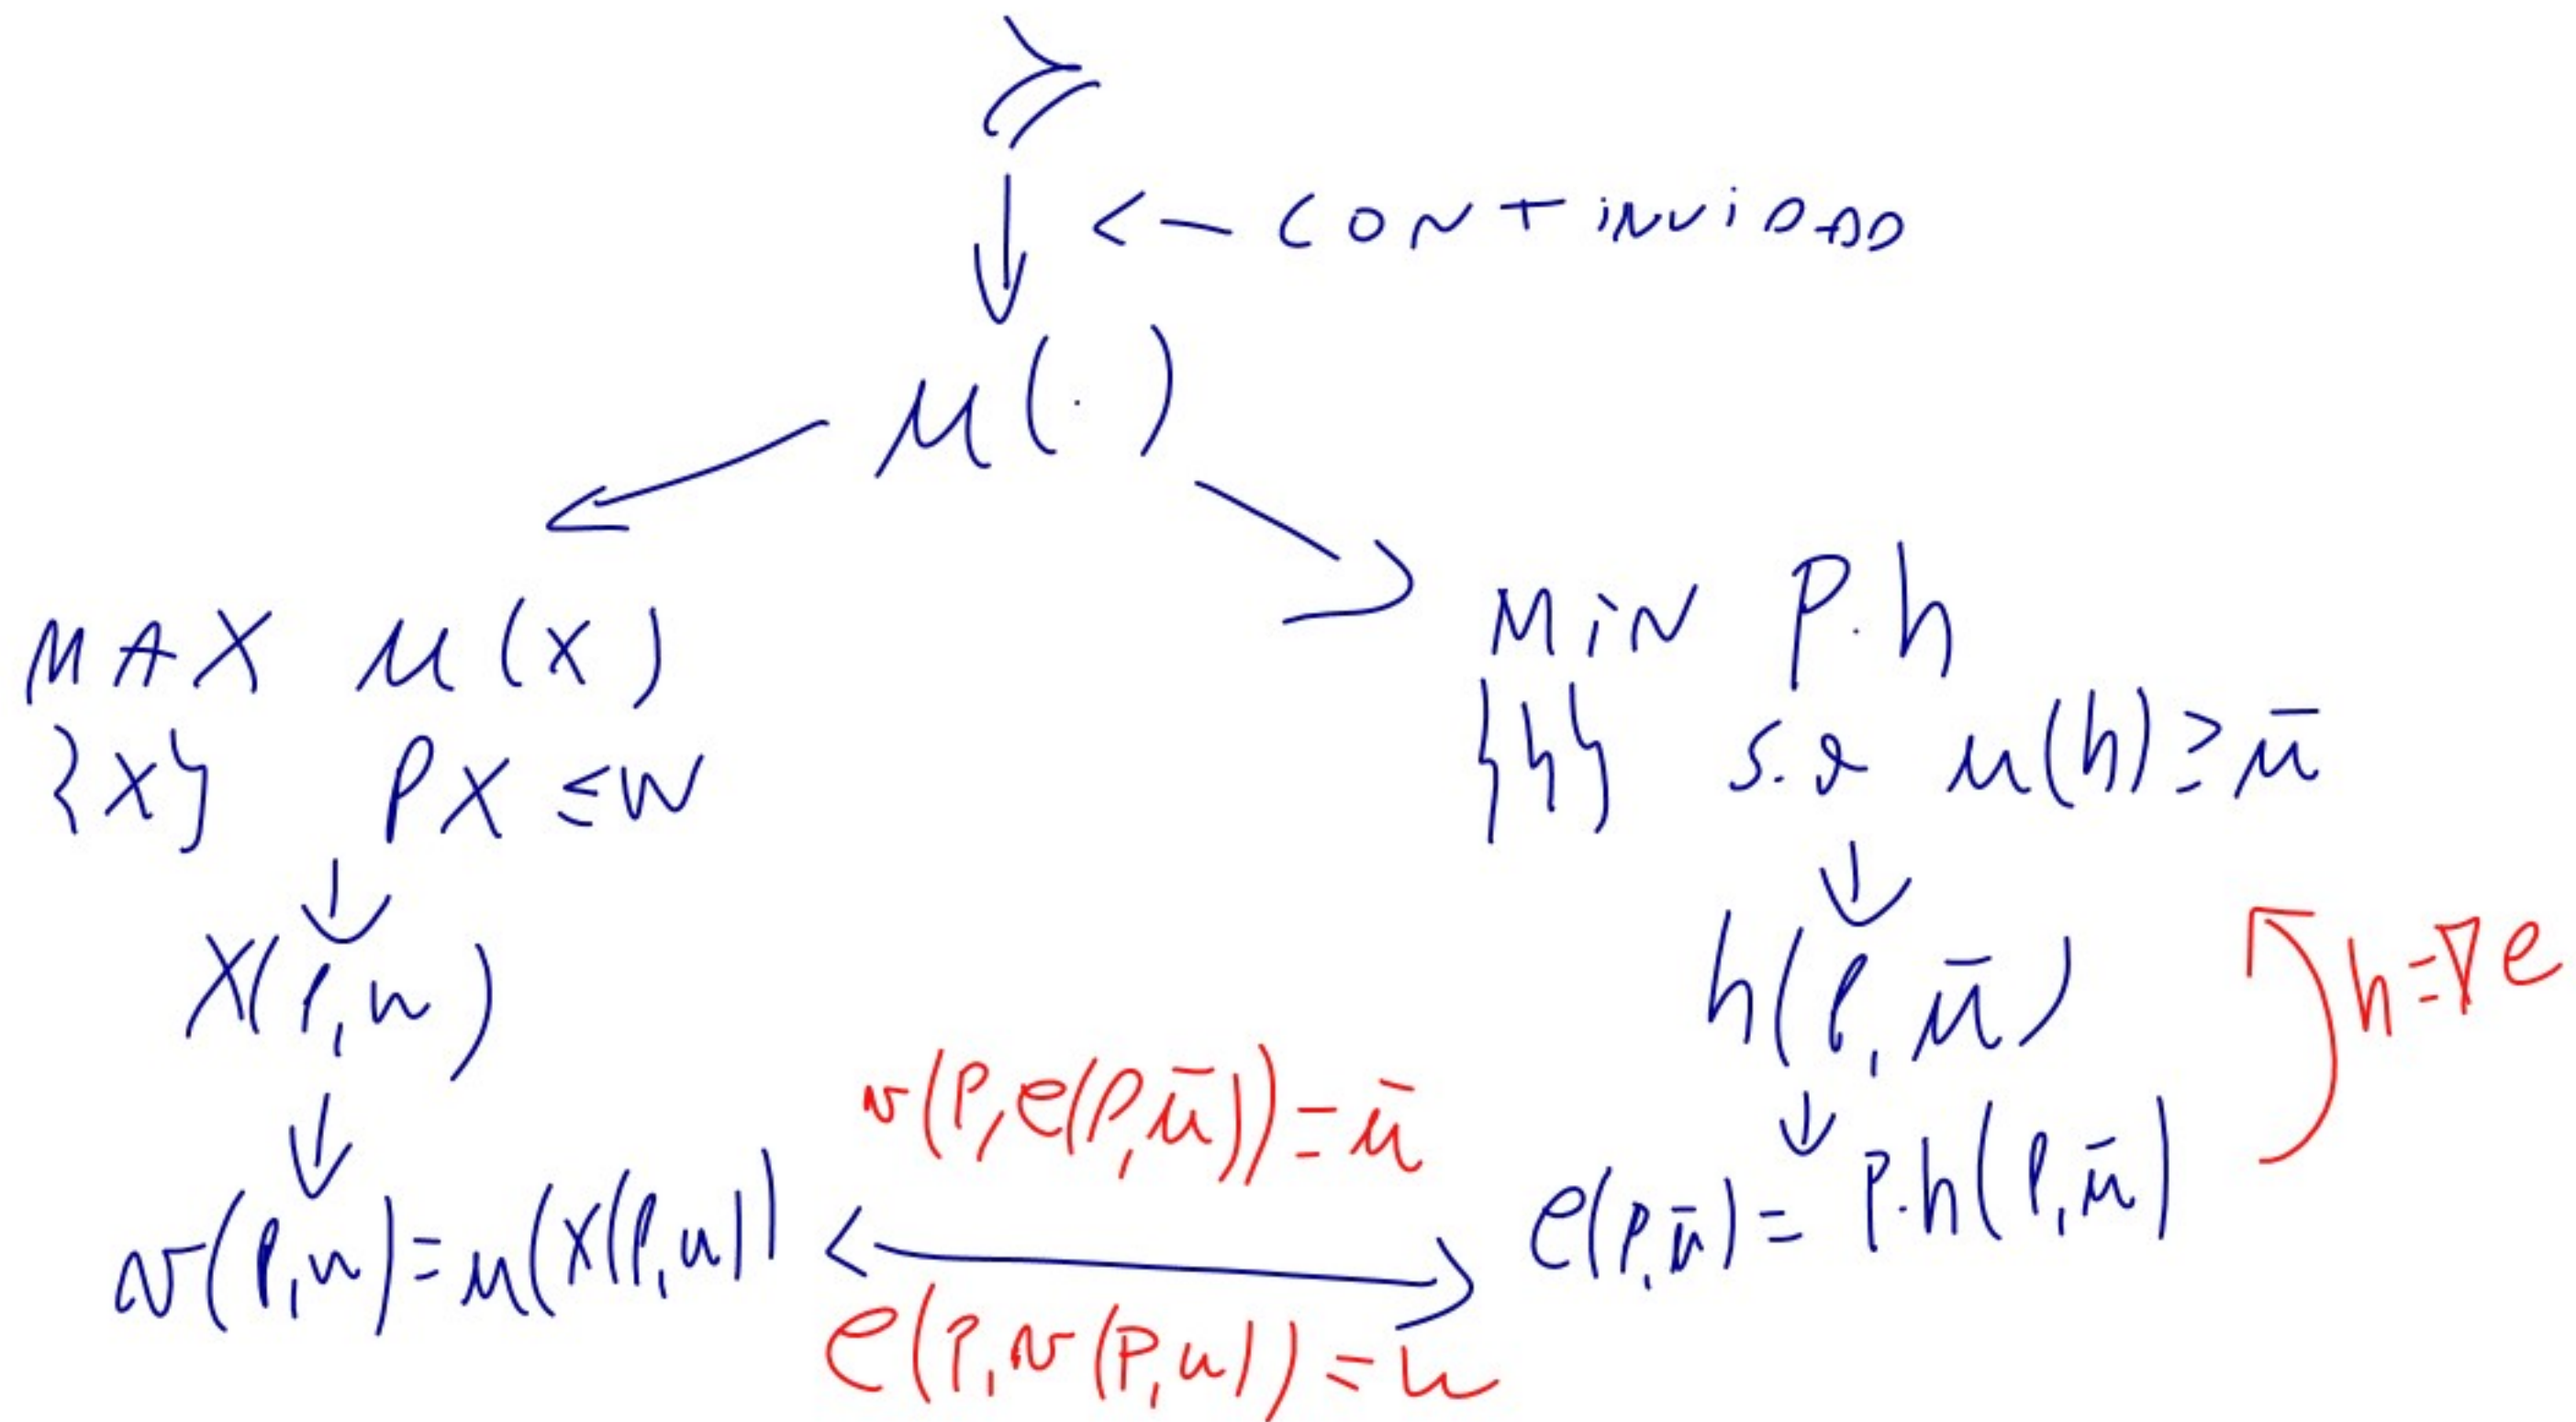 ≿
← CONTINUIDAD
u(·)
MAX u(x)
{x} PX ≤ W
X(P,w)
v(P,w) = u(X(P,w))
MiN P·h
{h} s.a u(h) ≥ ū
h(P,ū)
e(P,ū) = P·h(P,ū)
h = ∇e
v(P,e(P,ū)) = ū
e(P,v(P,w)) = w